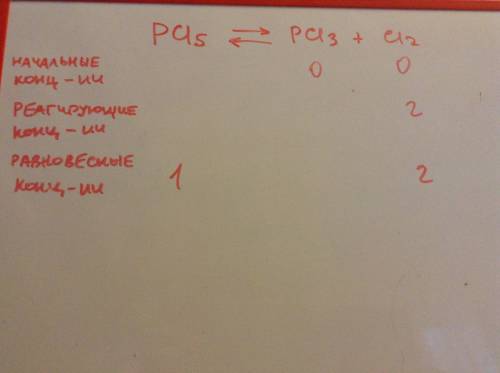 PCl5 ⇌ PCl3 + Cl2
НАЧАЛЬНЫЕ
КОНЦ-ИИ 0 0
РЕАГИРУЮЩИЕ 2
КОНЦ-ИИ
РАВНОВЕСНЫЕ
КОНЦ-ИИ 1 2